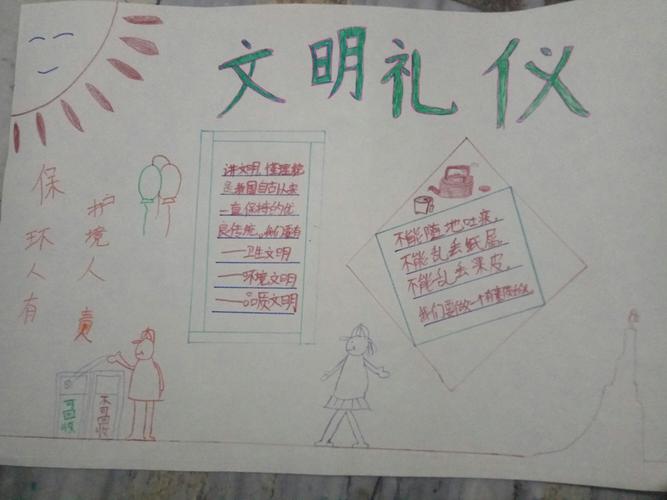 文明礼仪
保护环境人人有责
讲文明,懂理貌
是我国自古以来
一直保持的优
良传统。我们要有
——卫生文明
——环境文明
——品质文明
不能随地吐痰,
不能乱丢纸屑,
不能乱丢果皮,
我们要做一个有素质的人
可回收
不可回收